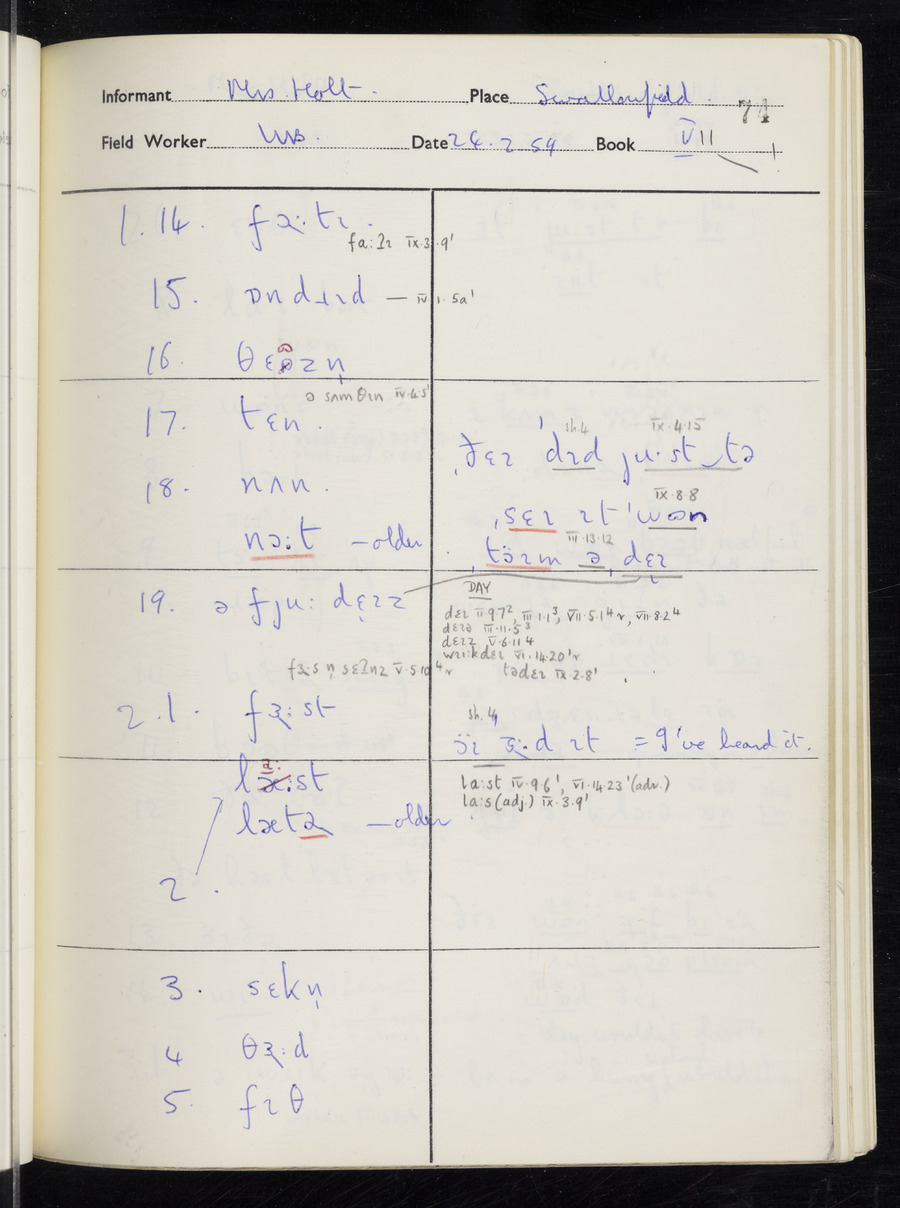 Informant Mrs Holt. Place Swallowfield. 74
Field Worker Date 24.2.59 Book VII
1.14. fɔ:tɪ.
fa:ʔɪ IX.3.9'
15. ɒndɹɪd — IV.1.5a'
16. θɛʊzn̩
ə sʌmθɪn IV.6.5'
17. tɛn.
18. nʌn.
nɔ:t — older
19. ə fju: dɛ̣ɪz
fɜ:s n̩ sɛʔnz V.5.10⁴ r
2.1. fɜ:st
la:st
lætə — older
2.
3. sɛkn̩
4 θɜ:d
5. fɪθ
sh.4 IX.4.15
ˌðɛɪ 'dɪd ju:st tə
IX.8.8
ˌsɛɪ ɪt 'wɒn
III.13.12
ˌtäɪm ə ˌdɛ̣ɪ
DAY
dɛɪ II.9.7², III.1.1³, VII.5.1⁴ r, VII.8.2⁴
dɛɪə III.11.5³
dɛɪz V.6.11 4
wɪi:kdɛɪ VI.14.20' r
tədɛɪ IX.2.8'
sh.4
ɔ̈ɪ ɜ:d ɪt = I've heard it.
la:st IV.9.6', VI.14.23' (adv.)
la:s (adj.) IX.3.9'